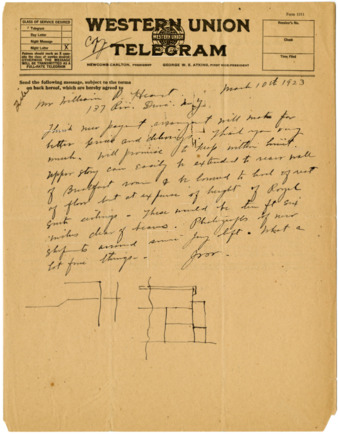 CLASS OF SERVICE DESIRED
Telegram
Day Letter
Night Message
Night Letter X
Patrons should mark an X opposite the class of service desired; OTHERWISE THE MESSAGE WILL BE TRANSMITTED AS A FULL-RATE TELEGRAM
WESTERN UNION
WESTERN UNION
TELEGRAM
NEWCOMB CARLTON, PRESIDENT GEORGE W. E. ATKINS, FIRST VICE-PRESIDENT
Form
Receiver's No.
Check
Time Filed
Send the following message, subject to the terms
on back hereof, which are hereby agreed to
March 10th 1923
Mr William R. Hearst
137 Riv. Drive N.Y.
Think new payment arrangement will make for
better speed and delivery. Thank you very
much. Will promise to keep within limit.
Upper story can easily be extended to rear wall
of Breakfast room & be bound to level of rest
of floor but at expense of height of Royal
Suite ceilings. These would be ten ft six
inches clear of beams. Photographs of new
ship to arrived since Joy left. What a
lot fine things.